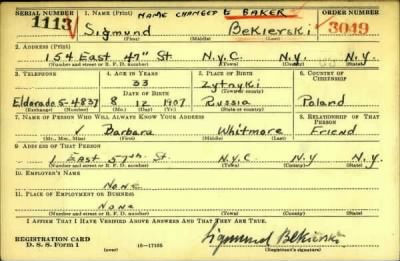 SERIAL NUMBER 1. NAME (Print) NAME CHANGET to BAKER ORDER NUMBER
1113 Sigmund BeKierski 3049
(First) (Middle) (Last)
2. ADDRESS (Print)
154 East 47th St. N.Y.C. N.Y. N.Y.
(Number and street or R. F. D. number) (Town) (County) (State)
3. TELEPHONE 4. AGE IN YEARS 5. PLACE OF BIRTH 6. COUNTRY OF CITIZENSHIP
33 Zytnyki
Eldorado 5-4837 8 12 1907 Russia Poland
(Exchange) (No.) (Mo.) (Day) (Yr.) (State or country)
7. NAME OF PERSON WHO WILL ALWAYS KNOW YOUR ADDRESS 8. RELATIONSHIP OF THAT PERSON
Barbara Whitmore Friend
(Mr., Mrs., Miss) (First) (Middle) (Last)
9. ADDRESS OF THAT PERSON
1 East 57th St. N.Y.C N.Y. N.Y.
(Number and street or R. F. D. number) (Town) (County) (State)
10. EMPLOYER'S NAME
None
11. PLACE OF EMPLOYMENT OR BUSINESS
None
(Number and street or R. F. D. number) (Town) (County) (State)
I AFFIRM THAT I HAVE VERIFIED ABOVE ANSWERS AND THAT THEY ARE TRUE.
REGISTRATION CARD
D. S. S. Form 1 (over) 16-17105 Sigmund Bekierski
(Registrant's signature)